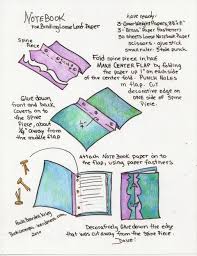 NOTEBOOK
for Binding Loose Leaf Paper
have ready:
3-Cover Weight Papers, 8½ x 11
3-Brass Paper Fasteners
30 Sheets Loose Notebook Paper
scissors - glue stick
small ruler - Hole Punch
Spine
Piece
Fold spine piece in half
MAKE CENTER FLAP by folding
the paper up 1" on each side
of the center fold. PUNCH HOLES
in FLAP. Cut
decorative edge on
ONE side of Spine
Piece.
Glue down,
front and
back, covers
on to the
Spine
Piece, about
away from
the middle flap
Attach NoteBook paper on to
the flap, using paper fasteners
2010
Decoratively Glue down the edge
that was cut away from the Spine Piece.